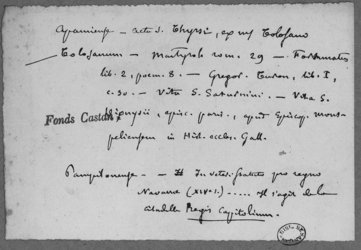 Apamiense — acta S. Thyrsi, ex ms Tolosano
Tolosanum — Martyrolo rom. 29 — Fortunatus
lib. 2, poem. 8. — Gregor. Turon., lib. I,
c. 30. — Vita S. Saturnini. — Vita S.
Dionysii, episc. paris., apud Episcop. mons-
peliensem in Hist. eccles. Gall.
Fonds Castan
Pampilonense — In veteri statuto pro regno
Navarræ (XIVe s.) ..... il s'agit de la
citadelle Regis Capitolium.